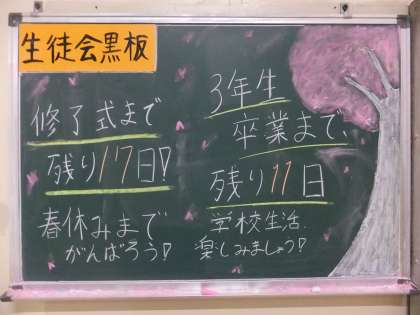 生徒会黒板
修了式まで
残り17日!
春休みまで
がんばろう!
3年生
卒業まで、
残り11日
学校生活
楽しみましょう!